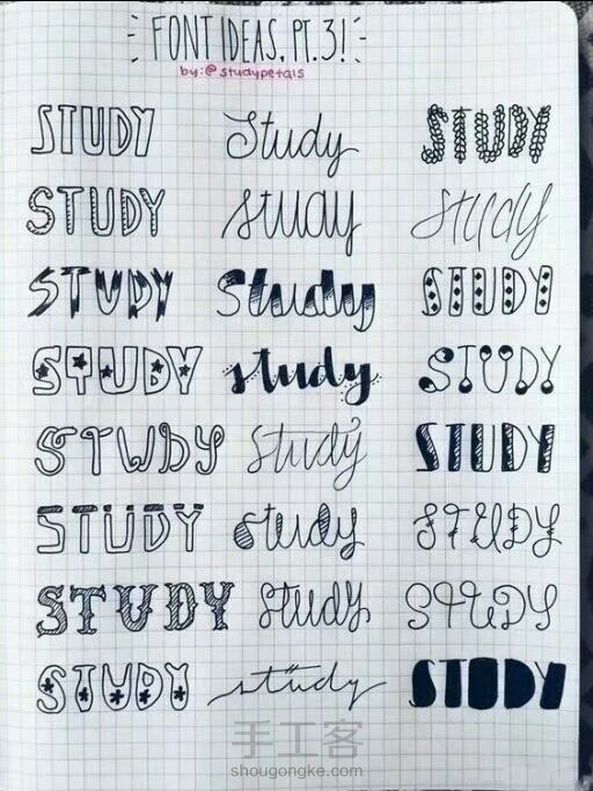 FONT IDEAS, PT.3!
by:@studypetals
STUDY Study STUDY
STUDY study study
STUDY Study STUDY
STUDY study STUDY
STUDY study STUDY
STUDY study STUDY
STUDY study STUDY
STUDY study STUDY
手工客
shougongke.com